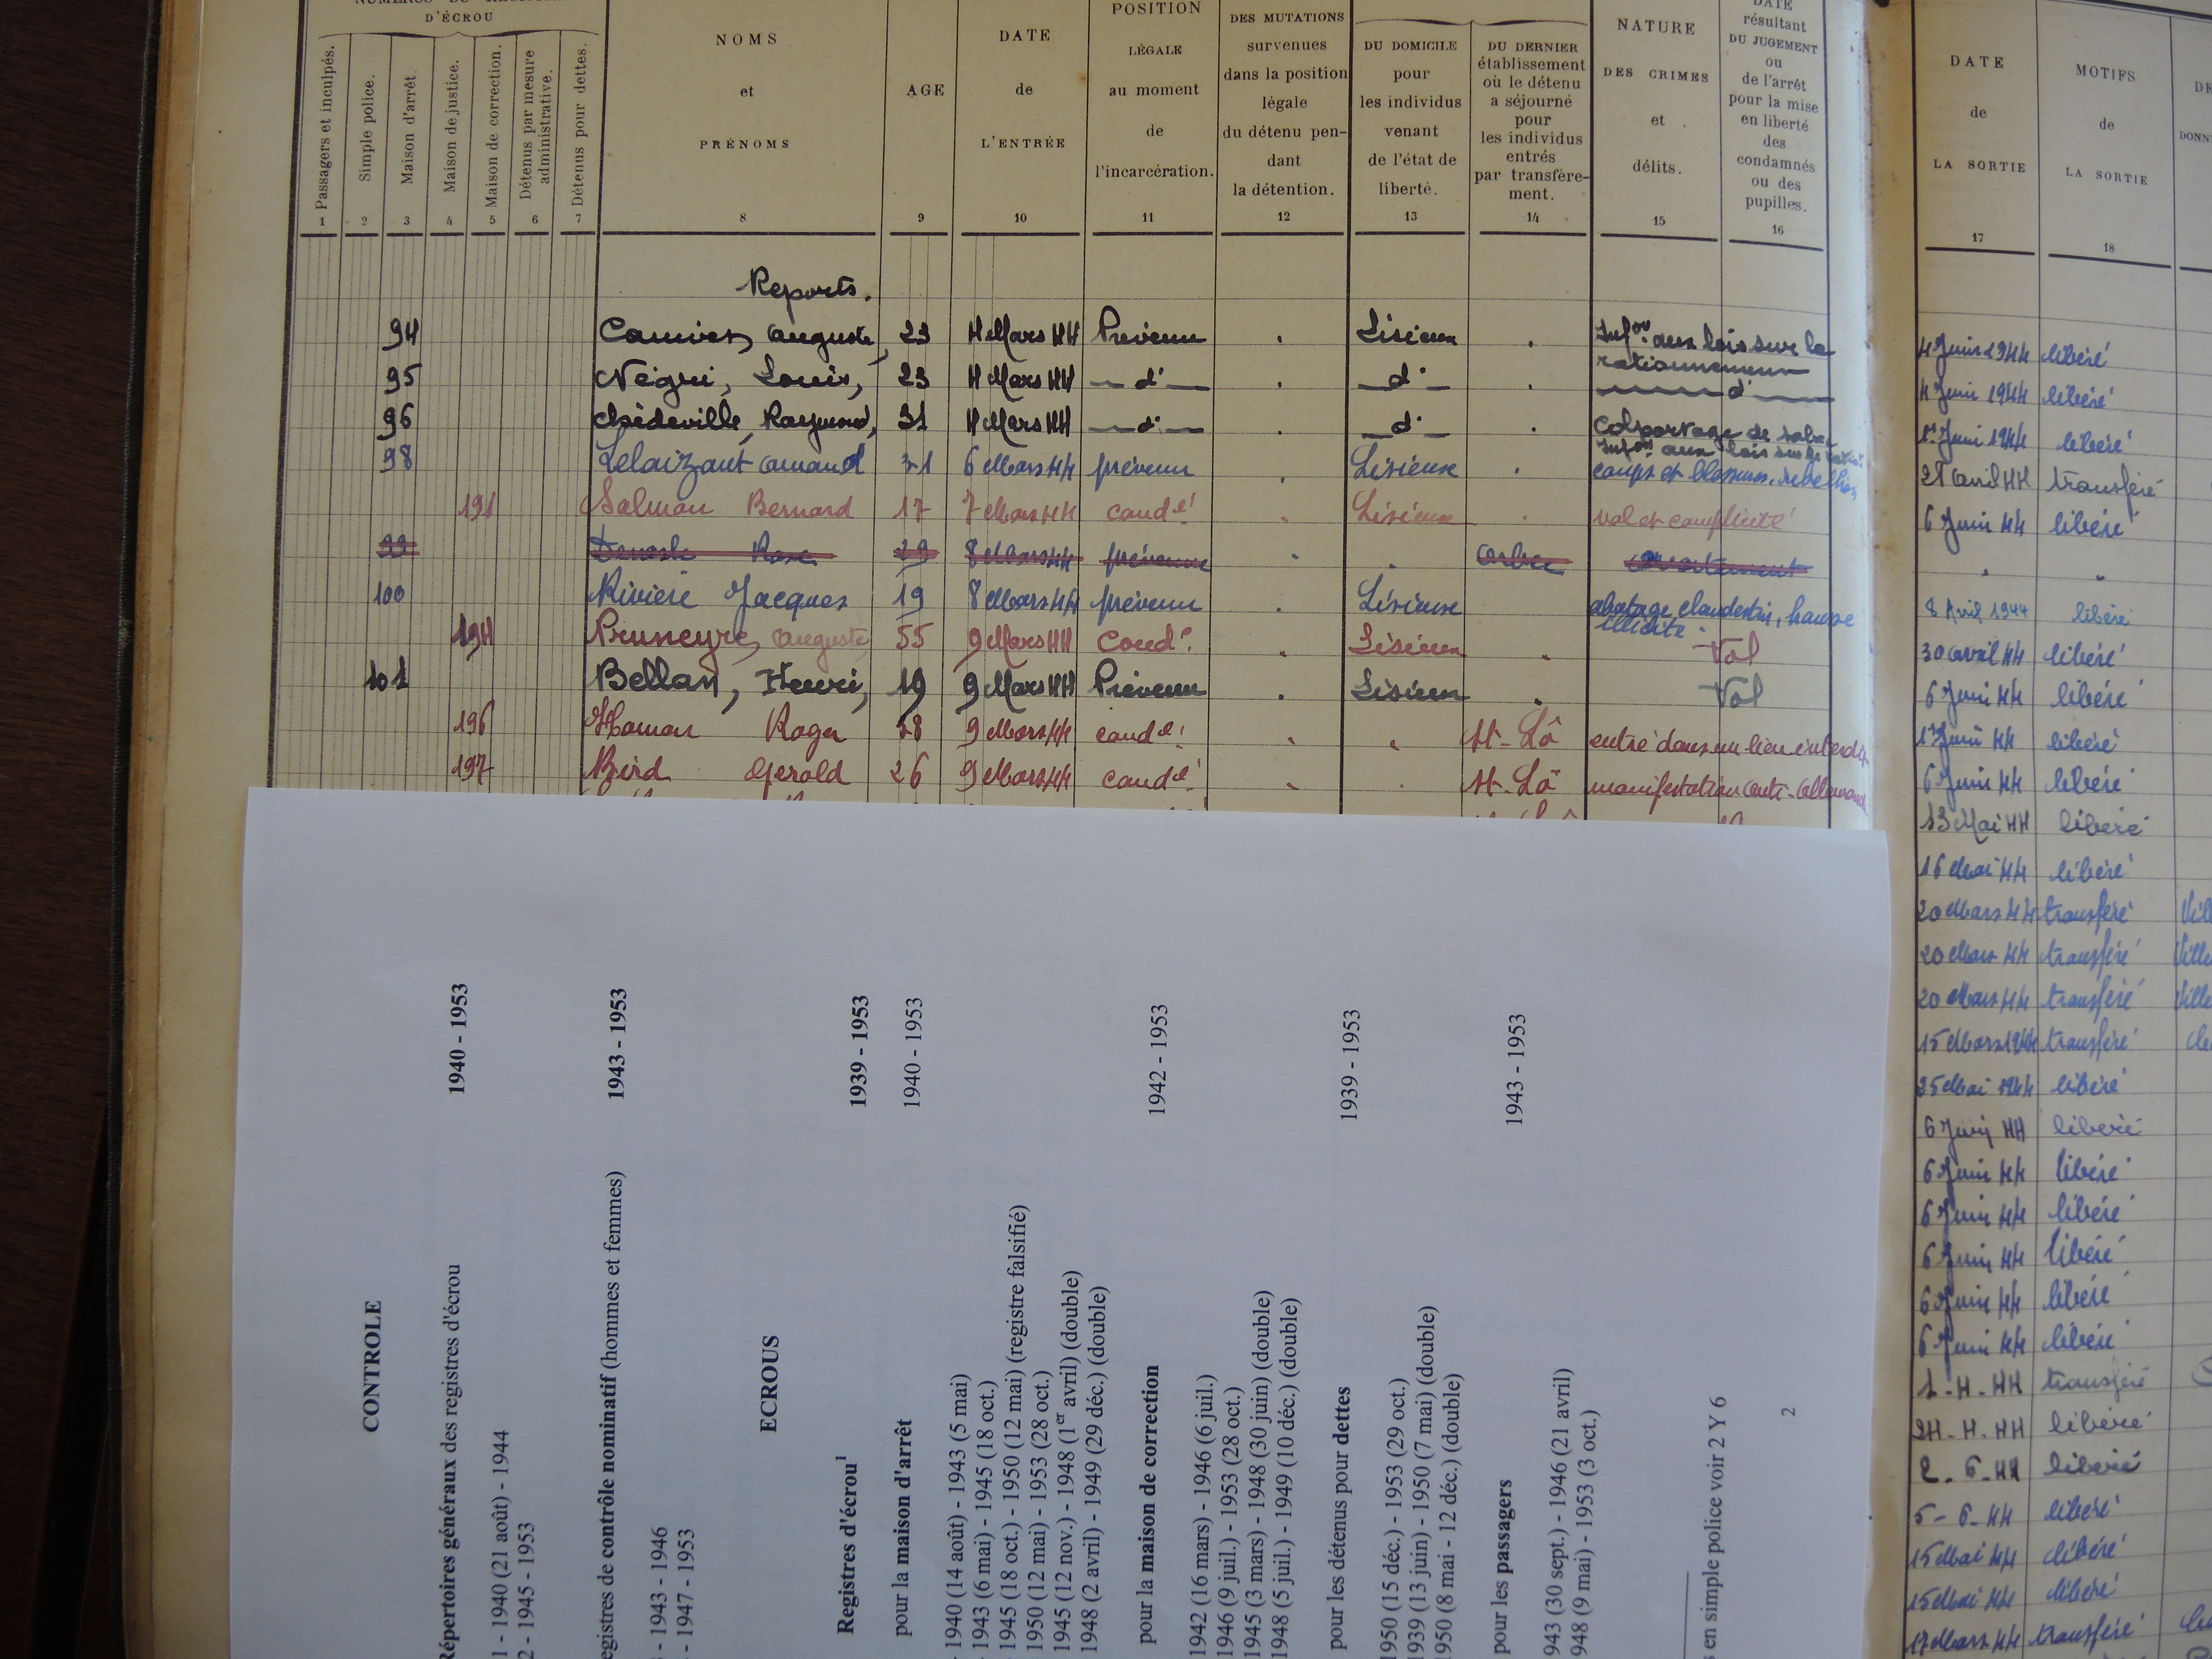 D'ÉCROU
1 Passagers et inculpés.
2 Simple police.
3 Maison d'arrêt.
4 Maison de justice.
5 Maison de correction.
6 Détenus par mesure administrative.
7 Détenus pour dettes.
NOMS
et
PRÉNOMS
8
AGE
9
DATE
de
L'ENTRÉE
10
POSITION
LÉGALE
au moment
de
l'incarcération.
11
DES MUTATIONS
survenues
dans la position
légale
du détenu pen-
dant
la détention.
12
DU DOMICILE
pour
les individus
venant
de l'état de
liberté.
13
DU DERNIER
établissement
où le détenu
a séjourné
pour
les individus
entrés
par transfère-
ment.
14
NATURE
DES CRIMES
et
délits.
15
DATE
résultant
DU JUGEMENT
ou
de l'arrêt
pour la mise
en liberté
des
condamnés
ou des
pupilles.
16
DATE
de
LA SORTIE
17
MOTIFS
de
LA SORTIE
18
Reports.
94 Auguste, 23 4 Mars 44 Prévenu Lisieux Infon aux lois sur le rationnement 4 Juin 1944 libéré
95 Négrii, Louis, 23 4 Mars 44 d° d° d° 4 Juin 1944 libéré
96 Chédeville, Raymond, 31 4 Mars 44 d° d° Colportage de Juin 1944 libéré
Infon aux lois sur
98 Lelaizant Armand 31 6 Mars 44 prévenu Lisieux coups et blessures, rebellion 28 Avril 44 transféré
191 Salmon Bernard 17 7 Mars 44 cond. Lisieux vol et complicité 6 Juin 44 libéré
99 Rose 29 8 Mars 44 prévenue avortement
100 Rivière Jacques 19 8 Mars 44 prévenu Lisieux abatage clandestin, hausse illicite. 8 Avril 1944 libéré
194 Pruneyre, Auguste 55 9 Mars 44 Cond. Lisieux Vol 30 Avril 44 libéré
101 Bellan, Henri, 19 9 Mars 44 Prévenu Lisieux Vol 6 Juin 44 libéré
196 Hamon Roger 28 9 Mars 44 cond. St-Lô entré dans un lieu interdit Juin 44 libéré
197 Bird Gerold 26 9 Mars 44 cond. St-Lô manifestation 6 Juin 44 libéré
13 Mai 44 libéré
16 Mai 44 libéré
20 Mars 44 transféré
20 Mars 44 transféré
20 Mars 44 transféré
15 Mars 1944 transféré
25 Mai 1944 libéré
6 Juin 44 libéré
6 Juin 44 libéré
6 Juin 44 libéré
6 Juin 44 libéré
6 Juin 44 libéré
6 Juin 44 libéré
1-4-44 transféré
24-4-44 libéré
2-6-44 libéré
5-6-44 libéré
15 Mai 44 libéré
15 Mai 44 libéré
17 Mars 44 transféré
CONTROLE
Répertoires généraux des registres d'écrou 1940 - 1953
1 - 1940 (21 août) - 1944
2 - 1945 - 1953
egistres de contrôle nominatif (hommes et femmes) 1943 - 1953
- 1943 - 1946
- 1947 - 1953
ECROUS
Registres d'écrou1 1939 - 1953
pour la maison d'arrêt 1940 - 1953
1940 (14 août) - 1943 (5 mai)
1943 (6 mai) - 1945 (18 oct.)
1945 (18 oct.) - 1950 (12 mai) (registre falsifié)
1950 (12 mai) - 1953 (28 oct.)
1945 (12 nov.) - 1948 (1er avril) (double)
1948 (2 avril) - 1949 (29 déc.) (double)
pour la maison de correction 1942 - 1953
1942 (16 mars) - 1946 (6 juil.)
1946 (9 juil.) - 1953 (28 oct.)
1945 (3 mars) - 1948 (30 juin) (double)
1948 (5 juil.) - 1949 (10 déc.) (double)
pour les détenus pour dettes 1939 - 1953
1950 (15 déc.) - 1953 (29 oct.)
1939 (13 juin) - 1950 (7 mai) (double)
1950 (8 mai - 12 déc.) (double)
pour les passagers 1943 - 1953
943 (30 sept.) - 1946 (21 avril)
948 (9 mai) - 1953 (3 oct.)
en simple police voir 2 Y 6
2